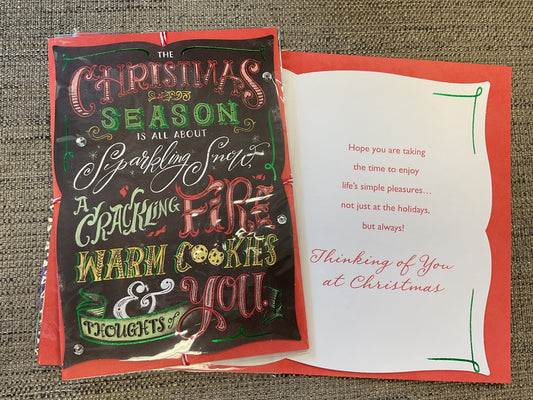 THE
CHRISTMAS
SEASON
IS ALL ABOUT
Sparkling Snow,
A CRACKLING FIRE
WARM COOKIES
& THOUGHTS of YOU
Hope you are taking
the time to enjoy
life's simple pleasures...
not just at the holidays,
but always!
Thinking of You
at Christmas